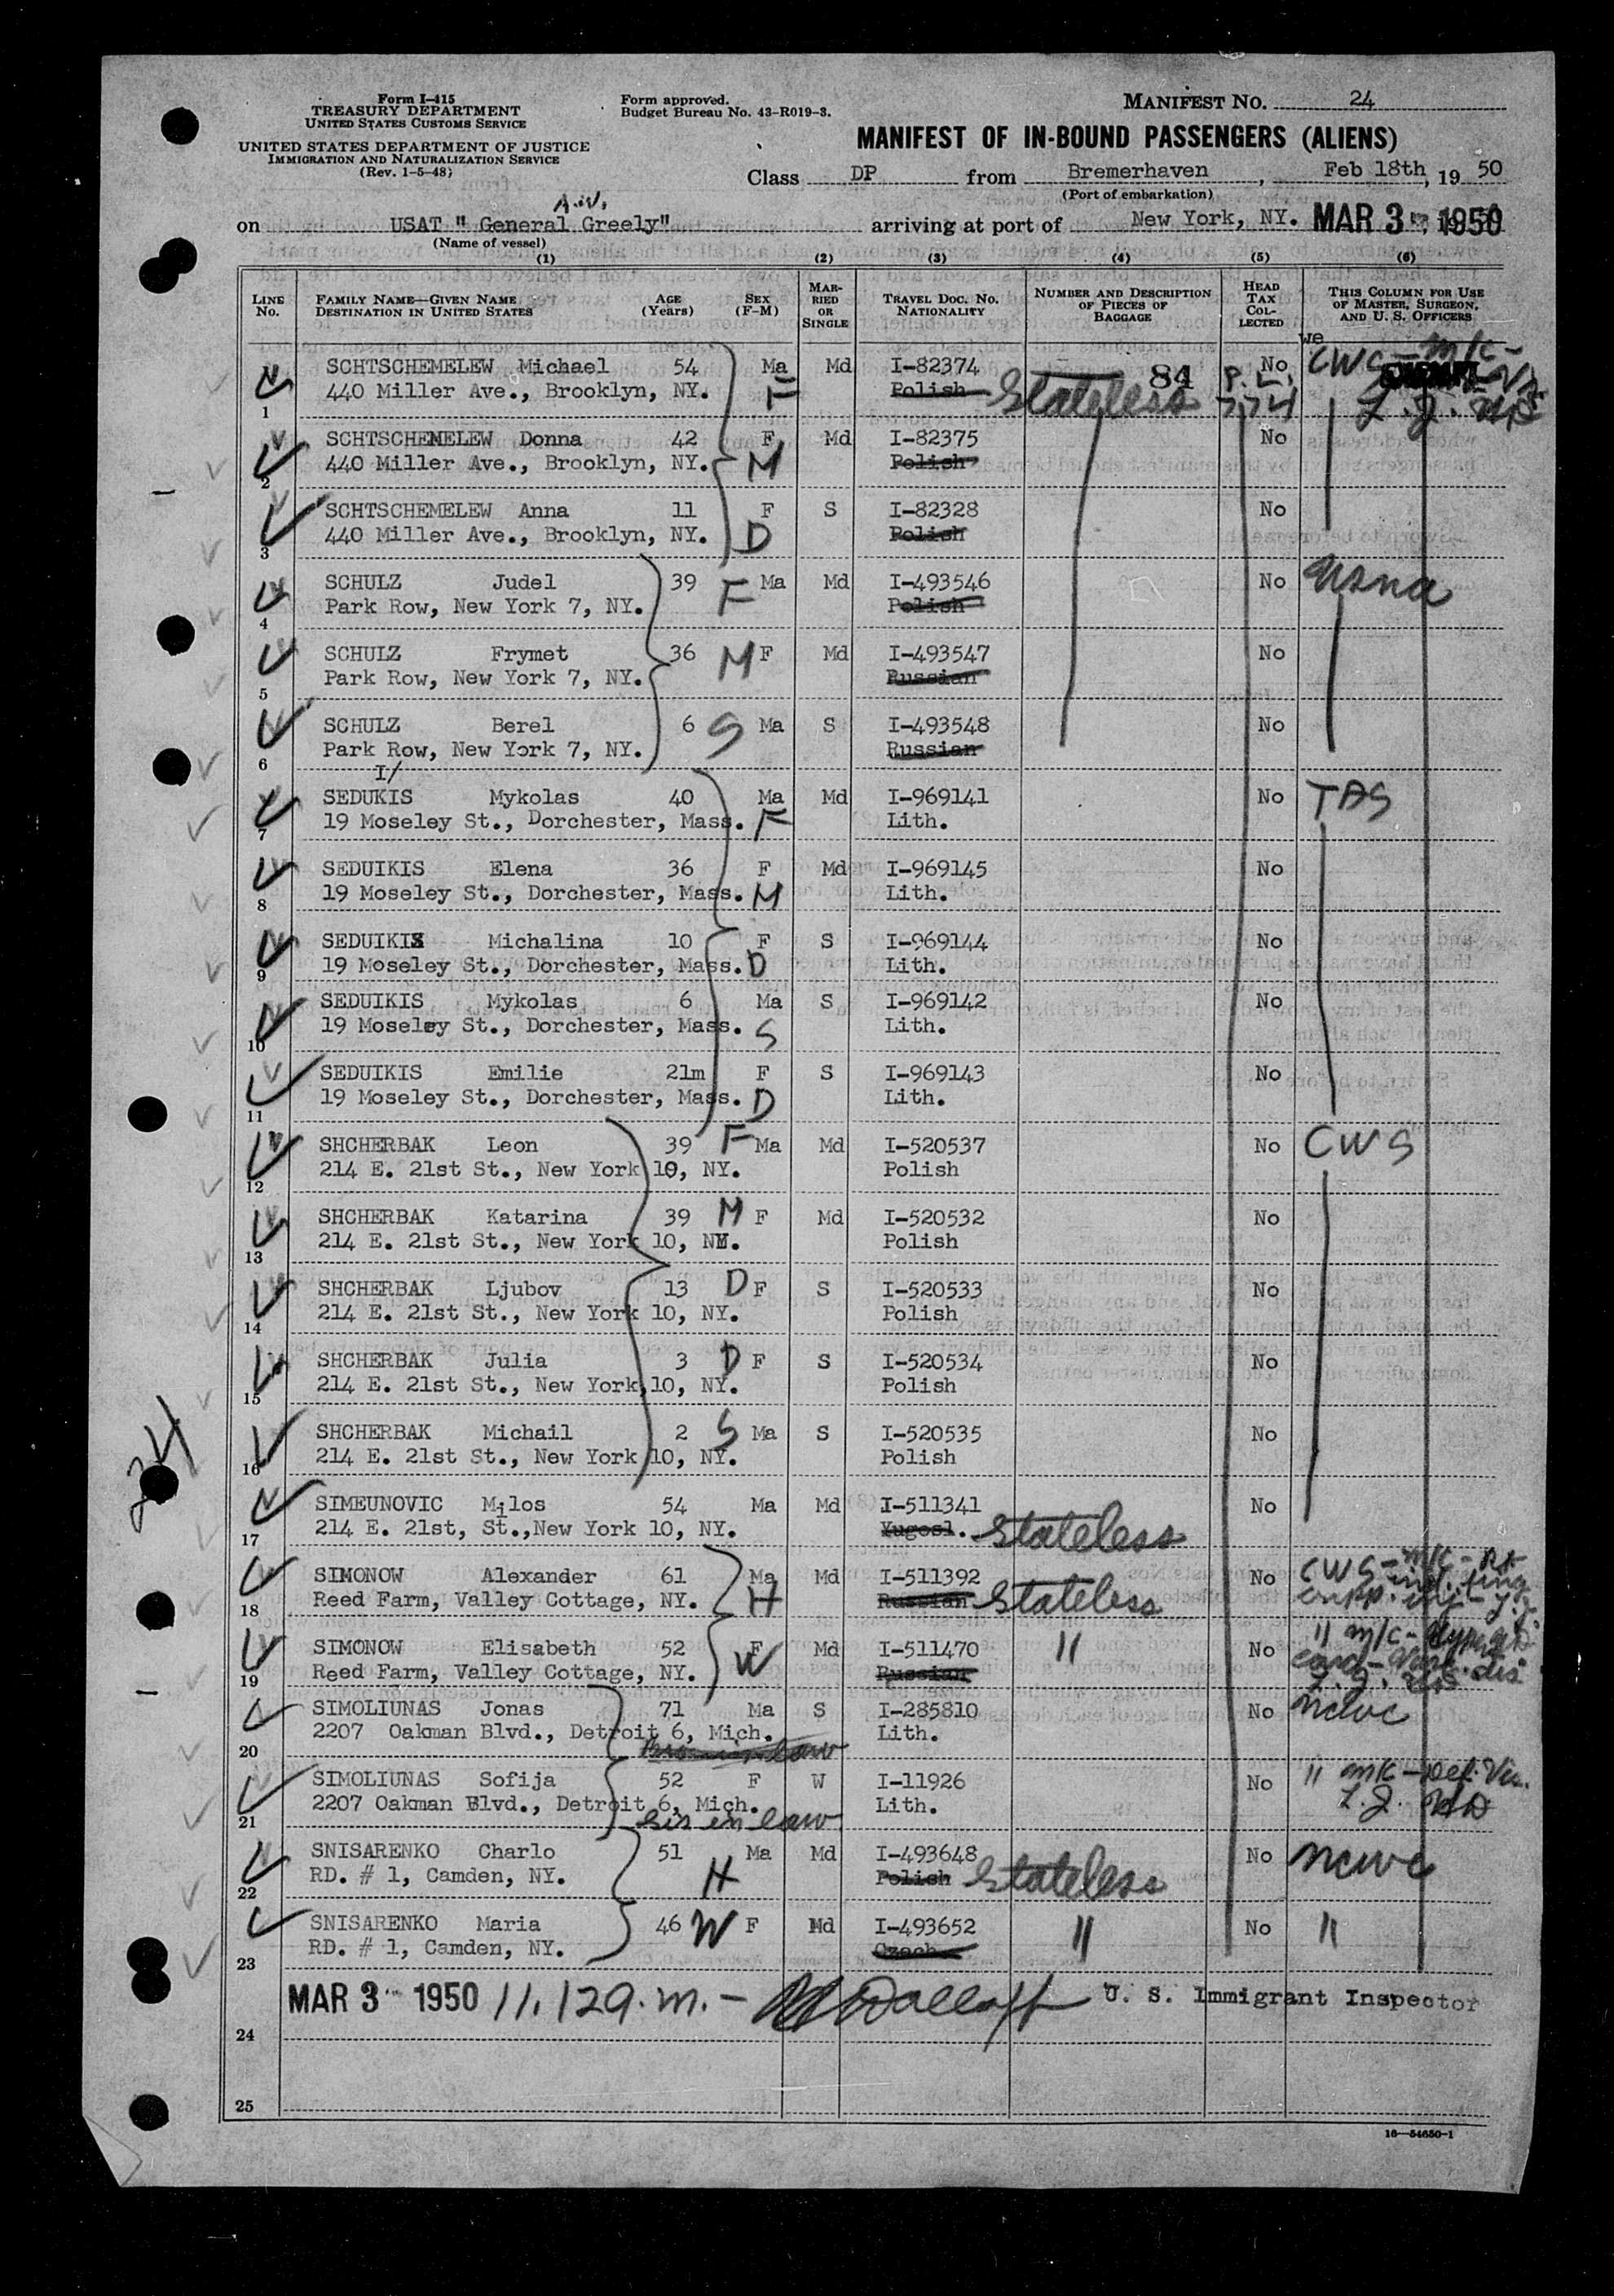 Form I-415
TREASURY DEPARTMENT
UNITED STATES CUSTOMS SERVICE
UNITED STATES DEPARTMENT OF JUSTICE
IMMIGRATION AND NATURALIZATION SERVICE
(Rev. 1-5-48)
Form approved.
Budget Bureau No. 43-R019-3.
MANIFEST NO. 24
MANIFEST OF IN-BOUND PASSENGERS (ALIENS)
Class DP from Bremerhaven, Feb 18th, 19 50
(Port of embarkation)
A.W.
on USAT " General Greely" arriving at port of New York, NY. MAR 3 1950
(Name of vessel)
(1) (2) (3) (4) (5) (6)
LINE NO. FAMILY NAME—GIVEN NAME DESTINATION IN UNITED STATES AGE (YEARS) SEX (F-M) MARRIED OR SINGLE TRAVEL DOC. NO. NATIONALITY NUMBER AND DESCRIPTION OF PIECES OF BAGGAGE HEAD TAX COLLECTED THIS COLUMN FOR USE OF MASTER, SURGEON, AND U. S. OFFICERS
we
SCHTSCHEMELEW Michael 54 Ma Md I-82374 84 No CWS - m/c -
1 440 Miller Ave., Brooklyn, NY. F Polish Stateless P.L. 774 L. J.
SCHTSCHEMELEW Donna 42 F Md I-82375 No
2 440 Miller Ave., Brooklyn, NY. M Polish
SCHTSCHEMELEW Anna 11 F S I-82328 No
3 440 Miller Ave., Brooklyn, NY. D Polish
SCHULZ Judel 39 F Ma Md I-493546 No usna
4 Park Row, New York 7, NY. Polish
SCHULZ Frymet 36 M F Md I-493547 No
5 Park Row, New York 7, NY. Russian
SCHULZ Berel 6 S Ma S I-493548 No
6 Park Row, New York 7, NY. Russian
I/
SEDUKIS Mykolas 40 Ma Md I-969141 No TAS
7 19 Moseley St., Dorchester, Mass. F Lith.
SEDUIKIS Elena 36 F Md I-969145 No
8 19 Moseley St., Dorchester, Mass. M Lith.
SEDUIKIS Michalina 10 F S I-969144 No
9 19 Moseley St., Dorchester, Mass. D Lith.
SEDUIKIS Mykolas 6 Ma S I-969142 No
10 19 Moseley St., Dorchester, Mass. S Lith.
SEDUIKIS Emilie 21m F S I-969143 No
11 19 Moseley St., Dorchester, Mass. D Lith.
SHCHERBAK Leon 39 F Ma Md I-520537 No CWS
12 214 E. 21st St., New York 10, NY. Polish
SHCHERBAK Katarina 39 M F Md I-520532 No
13 214 E. 21st St., New York 10, NY. Polish
SHCHERBAK Ljubov 13 D F S I-520533 No
14 214 E. 21st St., New York 10, NY. Polish
SHCHERBAK Julia 3 D F S I-520534 No
15 214 E. 21st St., New York 10, NY. Polish
SHCHERBAK Michail 2 S Ma S I-520535 No
16 214 E. 21st St., New York 10, NY. Polish
234
SIMEUNOVIC Milos 54 Ma Md I-511341 No
17 214 E. 21st, St.,New York 10, NY. Yugosl. Stateless
SIMONOW Alexander 61 Ma Md I-511392 No CWS - m/c - Rt
18 Reed Farm, Valley Cottage, NY. H Russian Stateless ind. fing
SIMONOW Elisabeth 52 F Md I-511470 " No " m/c -
19 Reed Farm, Valley Cottage, NY. W Russian card - dis L. J.
SIMOLIUNAS Jonas 71 Ma S I-285810 No ncwc
20 2207 Oakman Blvd., Detroit 6, Mich. Lith.
SIMOLIUNAS Sofija 52 F W I-11926 No " m/c - Def. Vis.
21 2207 Oakman Blvd., Detroit 6, Mich. Lith. L. J.
Sis in law
SNISARENKO Charlo 51 Ma Md I-493648 No ncwc
22 RD. # 1, Camden, NY. H Polish Stateless
SNISARENKO Maria 46 W F Md I-493652 " No "
23 RD. # 1, Camden, NY. Czech.
MAR 3 1950 11.12 a.m. - U. S. Immigrant Inspector
24
25
16—54650-1